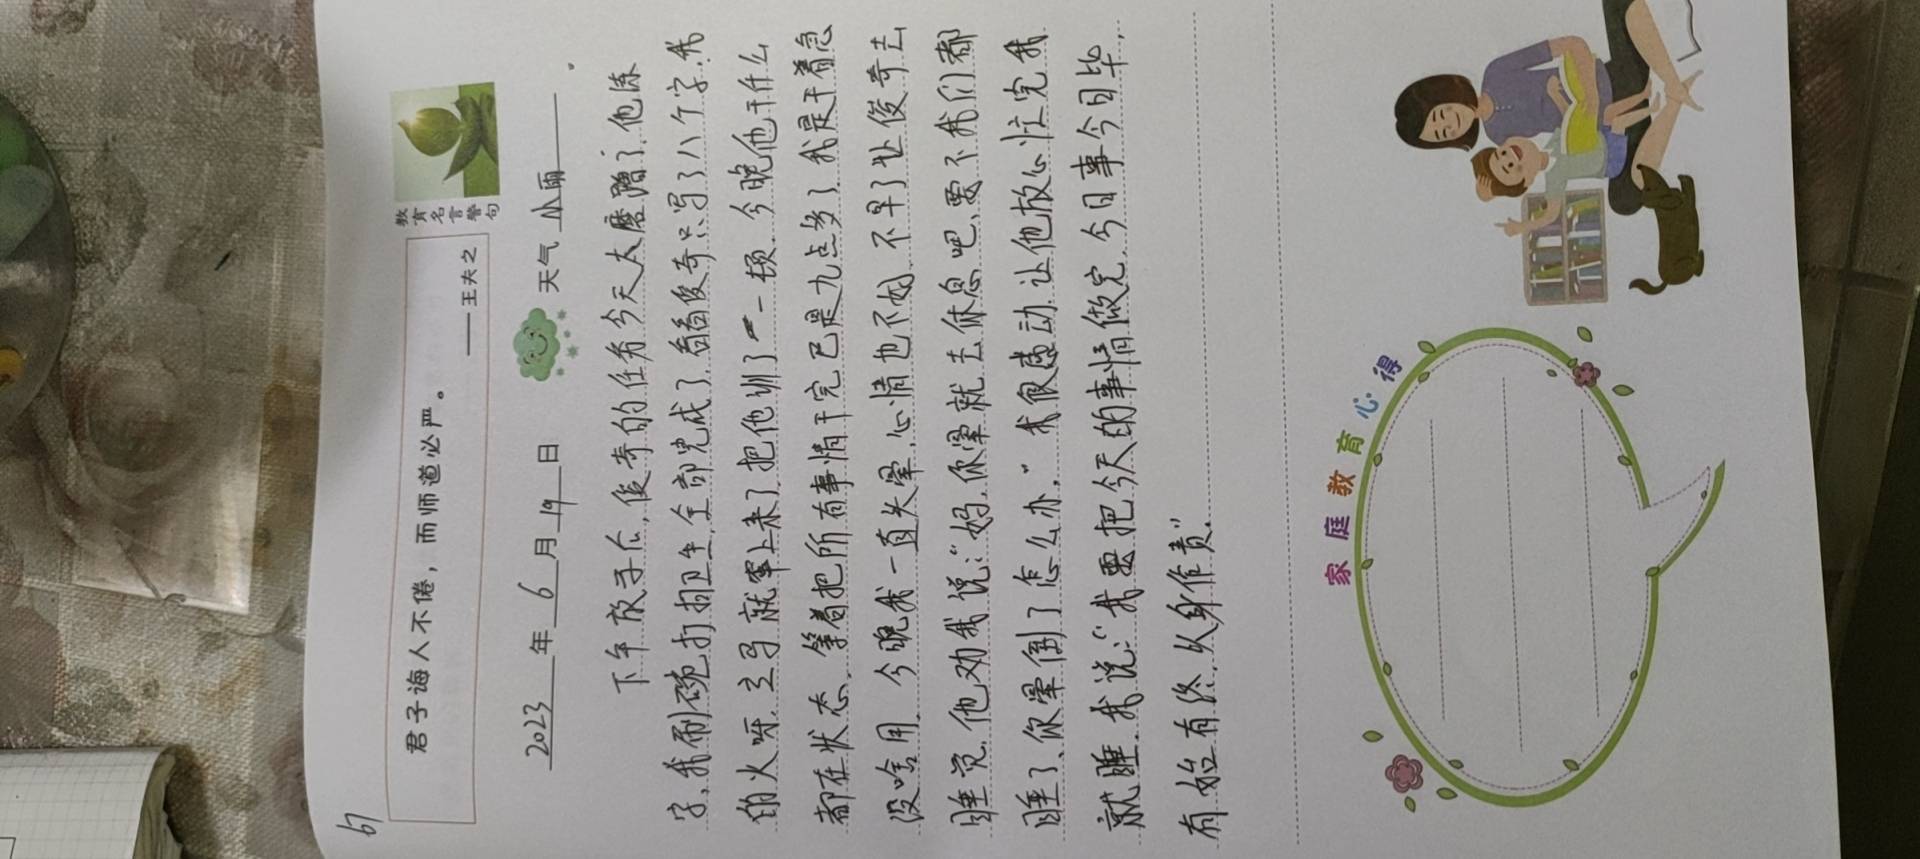 67
君子诲人不倦，而师道必严。
——王夫之
教育名言警句
2023年6月19日 天气 小雨
下午放学后，俊奇的任务今天太磨蹭了，他练
字，我刷碗打扫卫生，全部完成了，看看俊奇只写了八个字，我
的火呀，立马就窜上来了，把他训了一顿，今晚他干什么
都在状态，等着把所有事情干完已是九点多了，我是干着急
没啥用，今晚我一直头晕，心情也不好，不早了让俊奇去
睡觉，他劝我说：“妈，你晕就去休息吧，要不我们都
睡了，你晕倒了怎么办，”我很感动，让他放心忙完我
就睡，我说：“我要把今天的事情做完，今日事今日毕，
有始有终，以身作责”
家庭教育心得